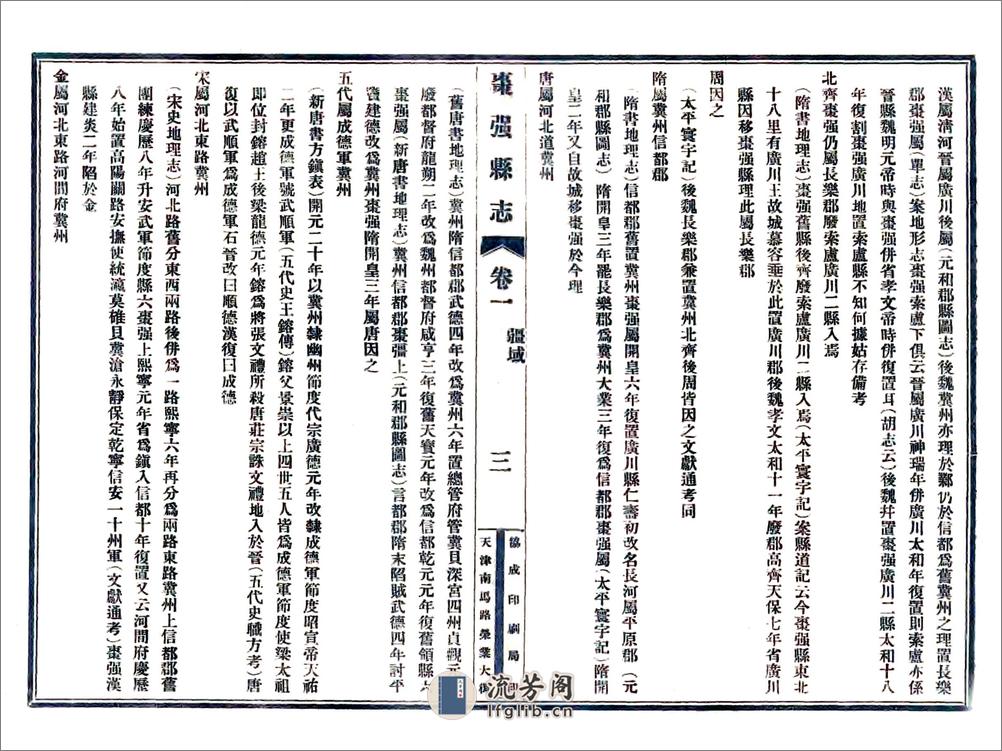 漢屬淸河晉屬廣川後屬（元和郡縣圖志）後魏冀州亦理於鄴仍於信都爲舊冀州之理置長樂
郡棗强屬（單志）案地形志棗强索盧下俱云晉屬廣川神瑞年併廣川太和年復置則索盧亦係
晉縣魏明元帝時與棗强併省孝文帝時併復置耳（胡志云）後魏幷置棗强廣川二縣太和十八
年復割棗强廣川地置索盧縣不知何據姑存備考
北齊棗强仍屬長樂郡廢索盧廣川二縣入焉
（隋書地理志）棗强舊縣後齊廢索盧廣川二縣入焉（太平寰宇記）案縣道記云今棗强縣東北
十八里有廣川王故城慕容垂於此置廣川郡後魏孝文太和十一年廢郡高齊天保七年省廣川
縣因移棗强縣理此屬長樂郡
周因之
（太平寰宇記）後魏長樂郡兼置冀州北齊後周皆因之文獻通考同
隋屬冀州信都郡
（隋書地理志）信都郡舊置冀州棗强屬開皇六年復置廣川縣仁壽初改名長河屬平原郡（元
和郡縣圖志）隋開皇三年罷長樂郡爲冀州大業三年復爲信都郡棗强屬（太平寰宇記）隋開
皇二年又自故城移棗强於今理
唐屬河北道冀州
棗强縣志
卷一
疆域
三
協成印刷局
天津南馬路榮業大街
（舊唐書地理志）冀州隋信都郡武德四年改爲冀州六年置總管府管冀貝深宮四州貞觀元
廢都督府龍朔二年改爲魏州都督府咸亨三年復舊天寳元年改爲信都乾元元年復舊領縣
棗强屬（新唐書地理志）冀州信都郡棗彊上（元和郡縣圖志）言都郡隋末陷賊武德四年討平
竇建德改爲冀州棗强隋開皇三年屬唐因之
五代屬成德軍冀州
（新唐書方鎭表）開元二十年以冀州隸幽州節度代宗廣德元年改隸成德軍節度昭宣帝天祐
二年更成德軍號武順軍（五代史王鎔傳）鎔父景崇以上四世五人皆爲成德軍節度使梁太祖
即位封鎔趙王後梁龍德元年鎔爲將張文禮所殺唐莊宗誅文禮地入於晉（五代史職方考）唐
復以武順軍爲成德軍石晉改曰順德漢復曰成德
宋屬河北東路冀州
（宋史地理志）河北路舊分東西兩路後併爲一路熙寧六年再分爲兩路東路冀州上信都郡舊
團練慶歷八年升安武軍節度縣六棗强上熙寧元年省爲鎭入信都十年復置又云河間府慶歷
八年始置高陽關路安撫使統瀛莫碓貝冀滄永靜保定乾寧信安一十州軍（文獻通考）棗强漢
縣建炎二年陷於金
金屬河北東路河間府冀州
流芳阁
lfglib.cn